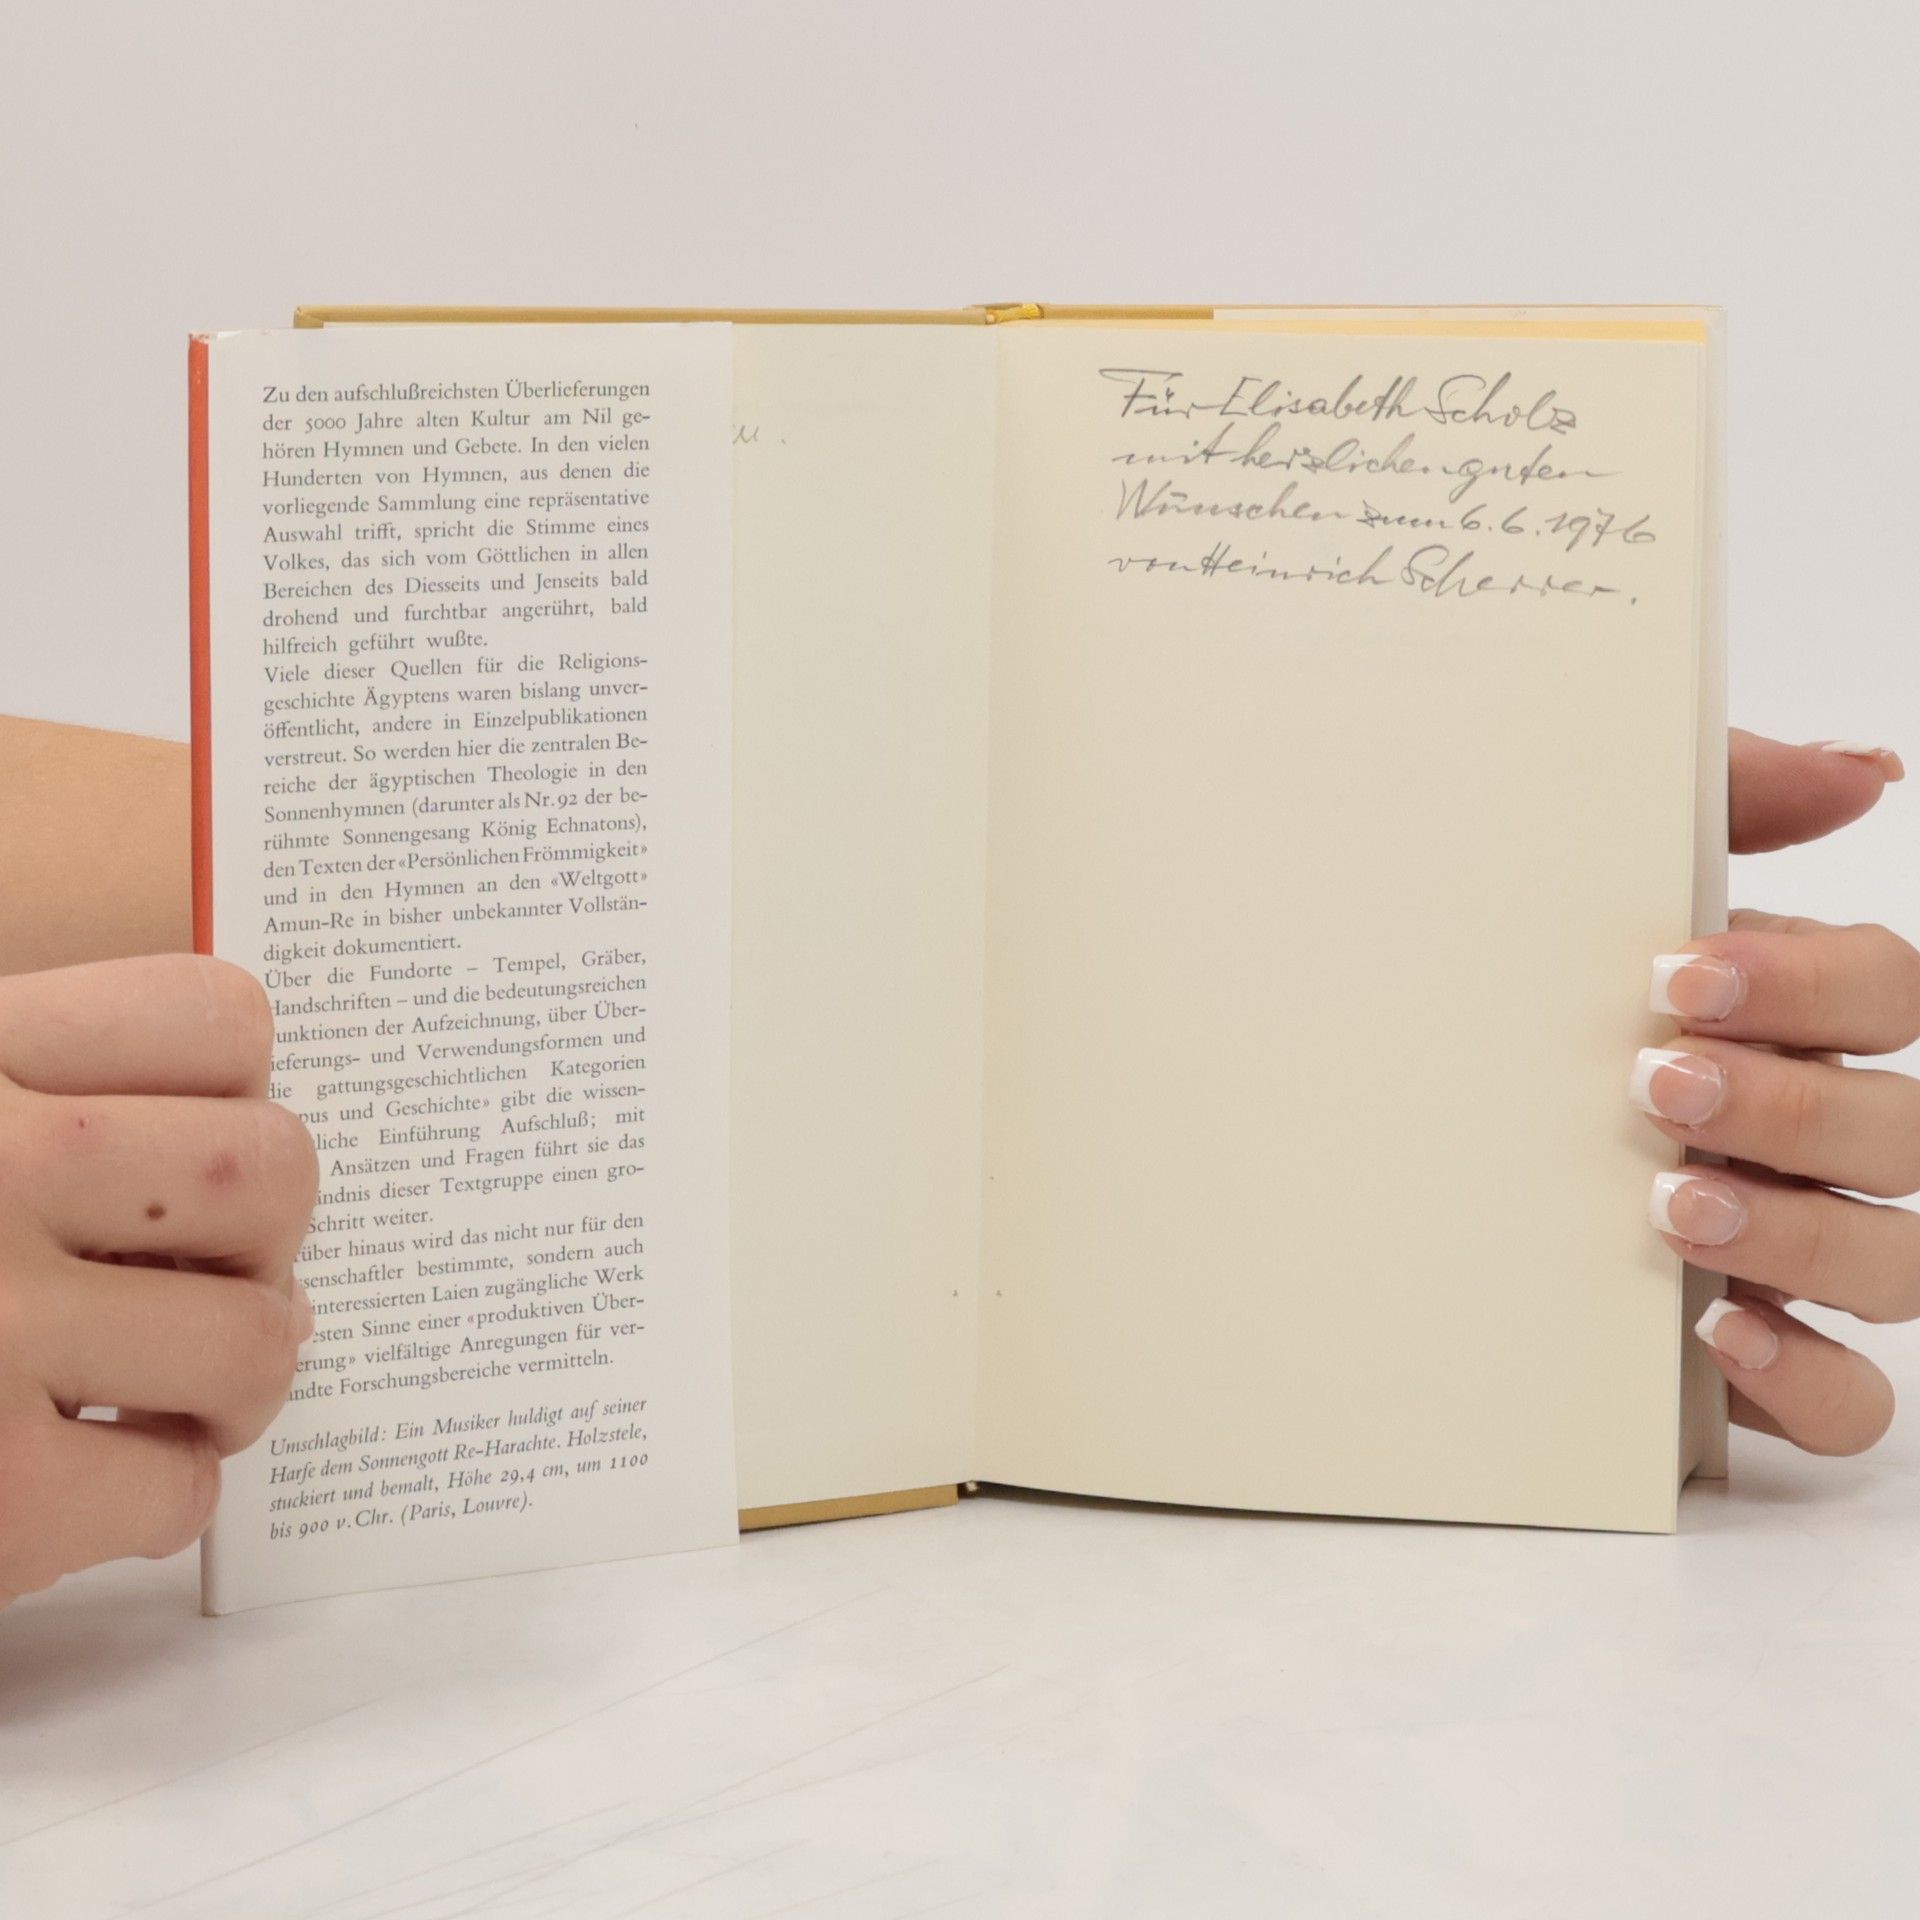 Zu den aufschlußreichsten Überlieferungen
der 5000 Jahre alten Kultur am Nil ge-
hören Hymnen und Gebete. In den vielen
Hunderten von Hymnen, aus denen die
vorliegende Sammlung eine repräsentative
Auswahl trifft, spricht die Stimme eines
Volkes, das sich vom Göttlichen in allen
Bereichen des Diesseits und Jenseits bald
drohend und furchtbar angerührt, bald
hilfreich geführt wußte.
Viele dieser Quellen für die Religions-
geschichte Ägyptens waren bislang unver-
öffentlicht, andere in Einzelpublikationen
verstreut. So werden hier die zentralen Be-
reiche der ägyptischen Theologie in den
Sonnenhymnen (darunter als Nr. 92 der be-
rühmte Sonnengesang König Echnatons),
den Texten der «Persönlichen Frömmigkeit»
und in den Hymnen an den «Weltgott»
Amun-Re in bisher unbekannter Vollstän-
digkeit dokumentiert.
Über die Fundorte – Tempel, Gräber,
Handschriften – und die bedeutungsreichen
unktionen der Aufzeichnung, über Über-
ieferungs- und Verwendungsformen und
die gattungsgeschichtlichen Kategorien
pus und Geschichte» gibt die wissen-
liche Einführung Aufschluß; mit
Ansätzen und Fragen führt sie das
ändnis dieser Textgruppe einen gro-
Schritt weiter.
rüber hinaus wird das nicht nur für den
ssenschaftler bestimmte, sondern auch
interessierten Laien zugängliche Werk
esten Sinne einer «produktiven Über-
erung» vielfältige Anregungen für ver-
andte Forschungsbereiche vermitteln.
Umschlagbild: Ein Musiker huldigt auf seiner
Harfe dem Sonnengott Re-Harachte. Holzstele,
stuckiert und bemalt, Höhe 29,4 cm, um 1100
bis 900 v. Chr. (Paris, Louvre).
Für Elisabeth Scholz
mit herzlichen guten
Wünschen zum 6. 6. 1976
von Heinrich Scherrer.